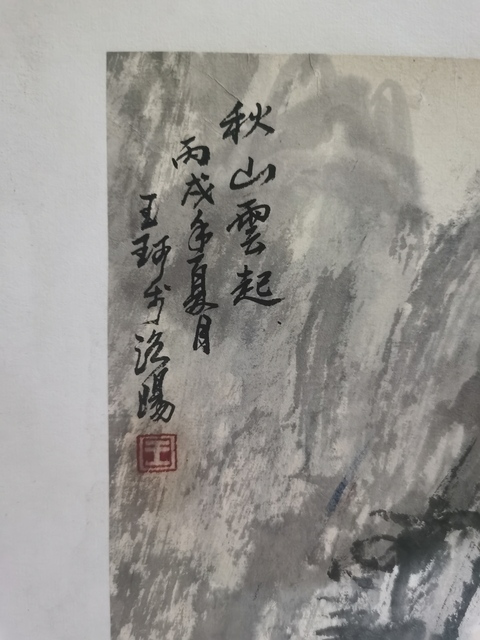 秋山雲起
丙戌年夏月
王珂于洛陽
王